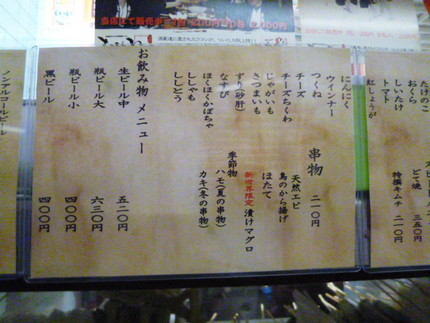 たけのこ
おくら
しいたけ
トマト
紅しょうが
どて焼 三五〇円
特撰キムチ 二一〇円
串物 二一〇円
にんにく
ウィンナー
つくね
チーズ
チーズちくわ
さつまいも
じゃがいも
ずり(砂肝)
なすび
ほくほくかぼちゃ
ししゃも
ししとう
天然エビ
鳥のから揚げ
ほたて
新世界限定 漬けマグロ
季節物
ハモ(夏の串物)
カキ(冬の串物)
お飲み物 メニュー
生ビール中 五二〇円
瓶ビール大 六三〇円
瓶ビール小 四〇〇円
黒ビール 四〇〇円
ノンアルコールビール